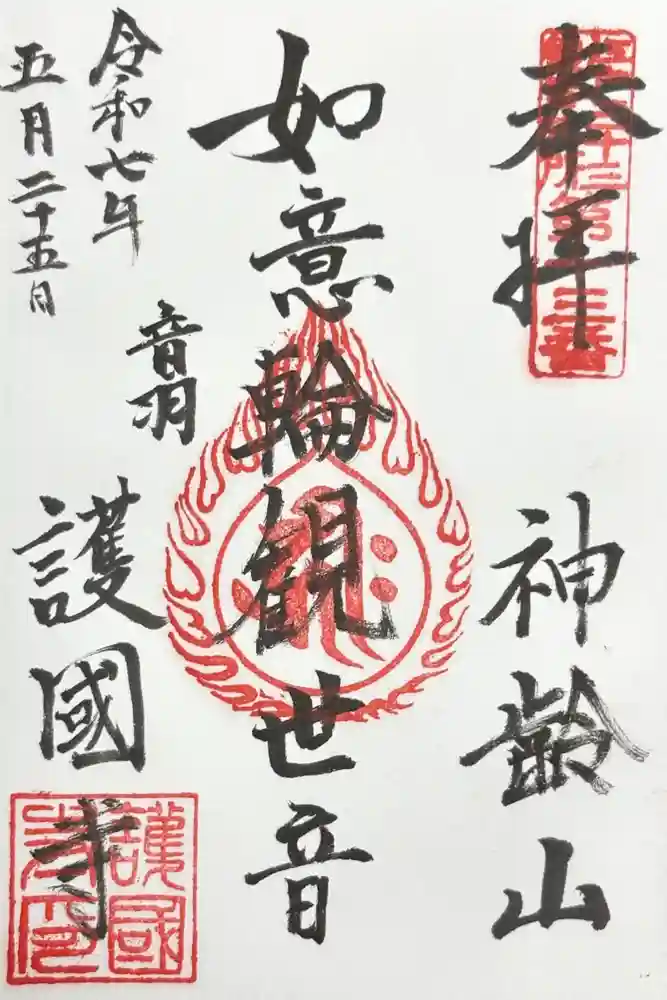 奉拝
神齢山
如意輪観世音
音羽
護國寺
令和七年
五月二十五日
護國寺印